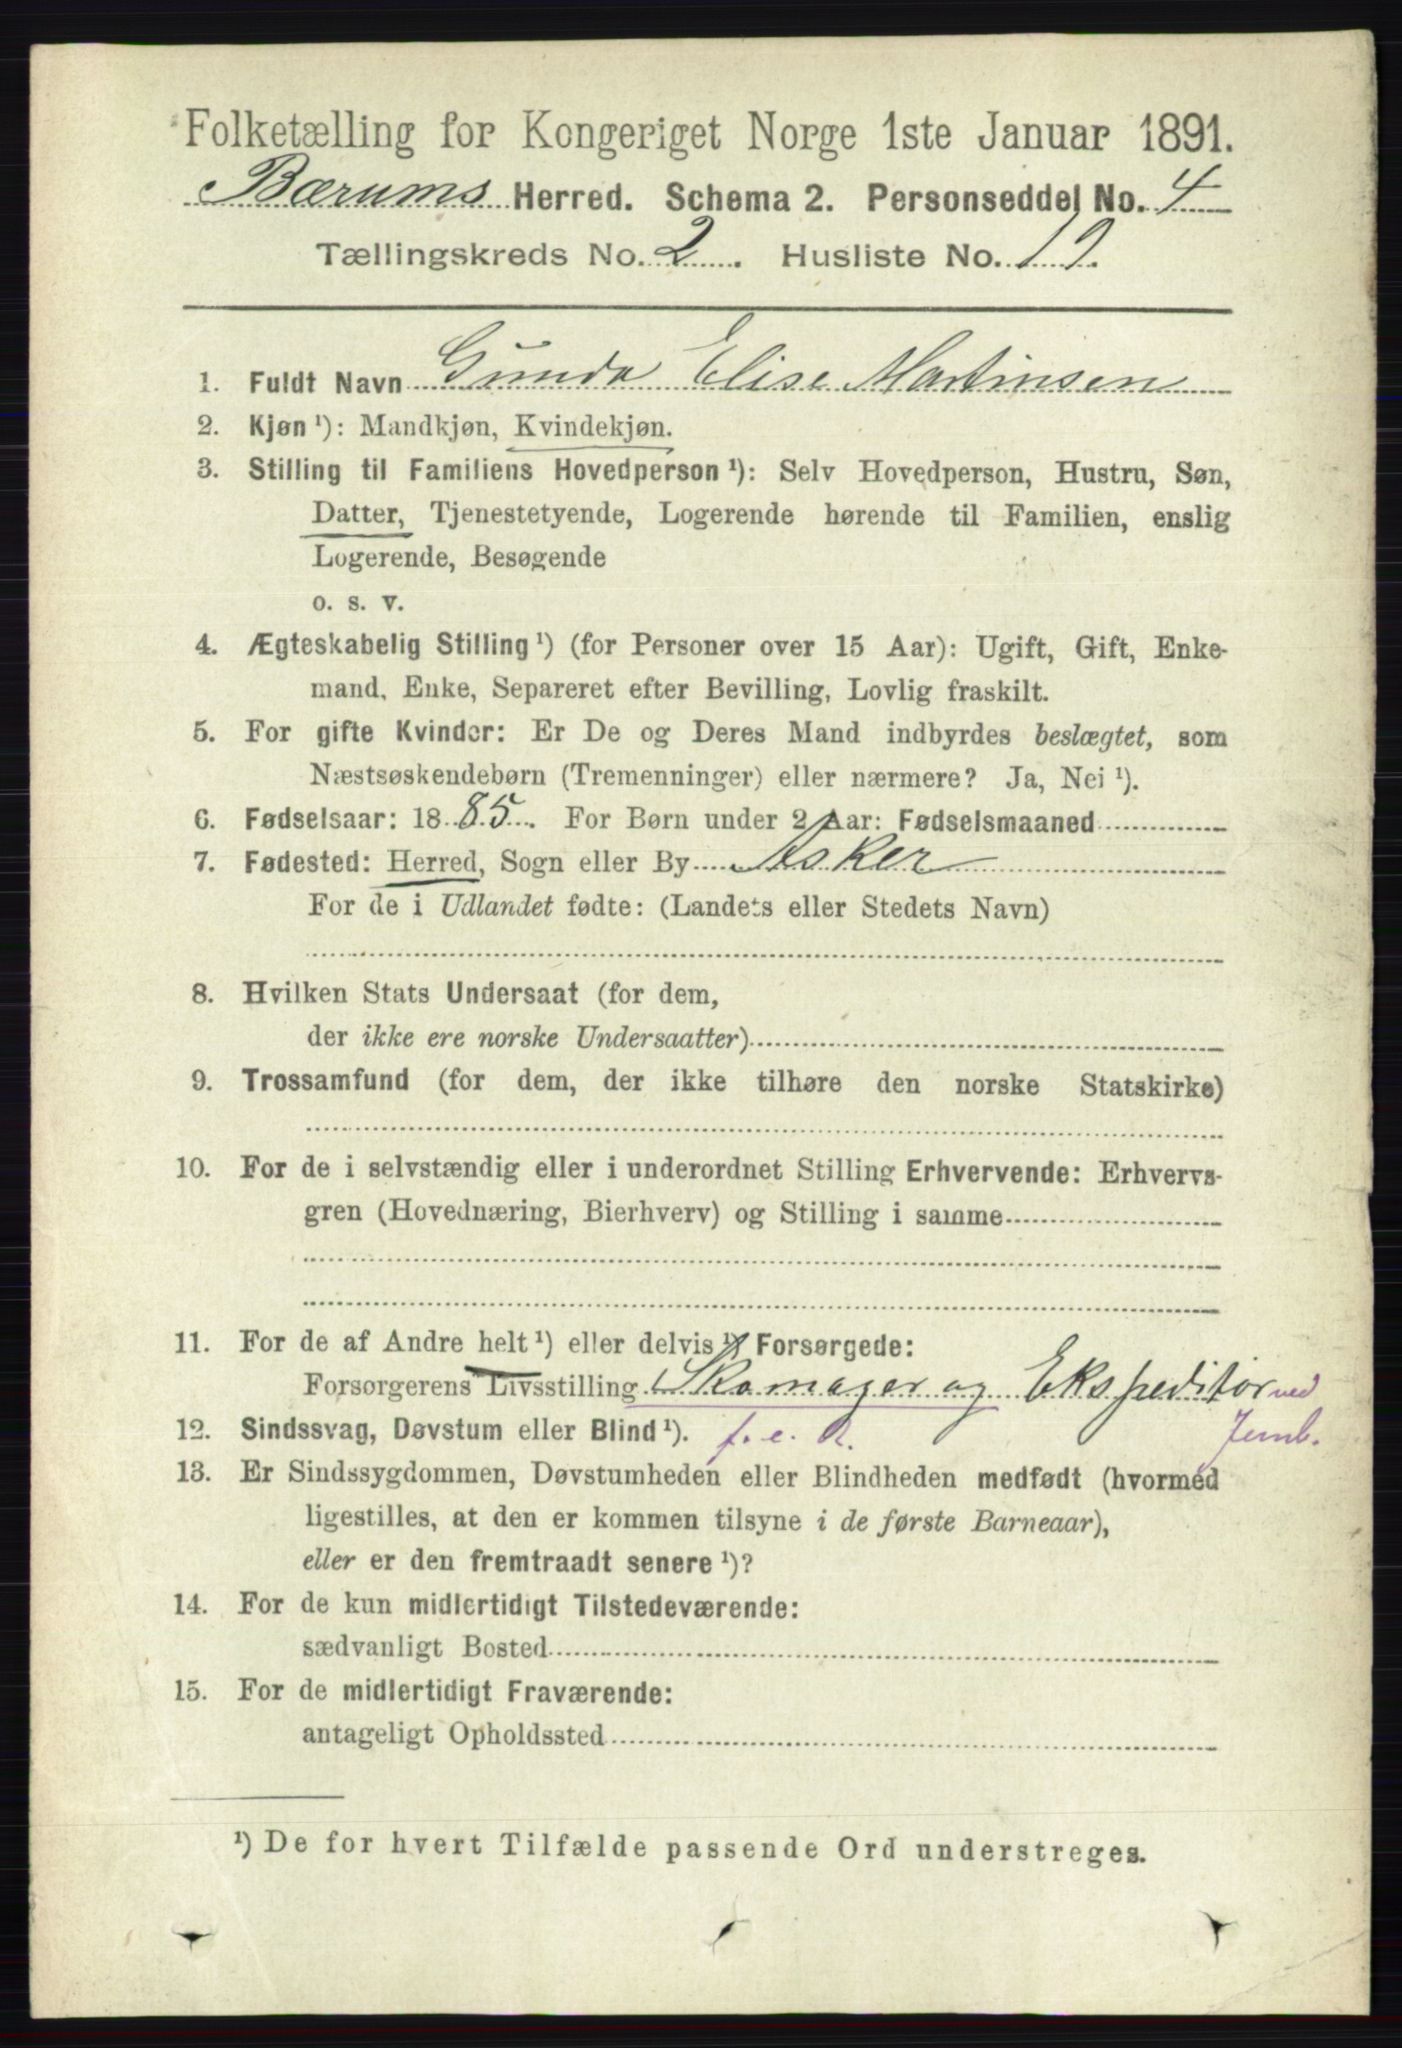 Folketælling for Kongeriget Norge 1ste Januar 1891.
Bærums Herred. Schema 2. Personseddel No. 4
Tællingskreds No. 2. Husliste No. 19.
1. Fuldt Navn Gunda Elise Martinsen
2. Kjøn ¹): Mandkjøn, Kvindekjøn.
3. Stilling til Familiens Hovedperson ¹): Selv Hovedperson, Hustru, Søn,
Datter, Tjenestetyende, Logerende hørende til Familien, enslig
Logerende, Besøgende
o. s. v.
4. Ægteskabelig Stilling ¹) (for Personer over 15 Aar): Ugift, Gift, Enke-
mand, Enke, Separeret efter Bevilling, Lovlig fraskilt.
5. For gifte Kvinder: Er De og Deres Mand indbyrdes beslægtet, som
Næstsøskendebørn (Tremenninger) eller nærmere? Ja, Nei ¹).
6. Fødselsaar: 1885. For Børn under 2 Aar: Fødselsmaaned
7. Fødested: Herred, Sogn eller By Asker
For de i Udlandet fødte: (Landets eller Stedets Navn)
8. Hvilken Stats Undersaat (for dem,
der ikke ere norske Undersaatter)
9. Trossamfund (for dem, der ikke tilhøre den norske Statskirke)
10. For de i selvstændig eller i underordnet Stilling Erhvervende: Erhvervs-
gren (Hovednæring, Bierhverv) og Stilling i samme
11. For de af Andre helt ¹) eller delvis ¹) Forsørgede:
Forsørgerens Livsstilling Skomager og Ekspeditør ved
12. Sindssvag, Døvstum eller Blind ¹). f. e. R. Jernb.
13. Er Sindssygdommen, Døvstumheden eller Blindheden medfødt (hvormed
ligestilles, at den er kommen tilsyne i de første Barneaar),
eller er den fremtraadt senere ¹)?
14. For de kun midlertidigt Tilstedeværende:
sædvanligt Bosted
15. For de midlertidigt Fraværende:
antageligt Opholdssted
¹) De for hvert Tilfælde passende Ord understreges.